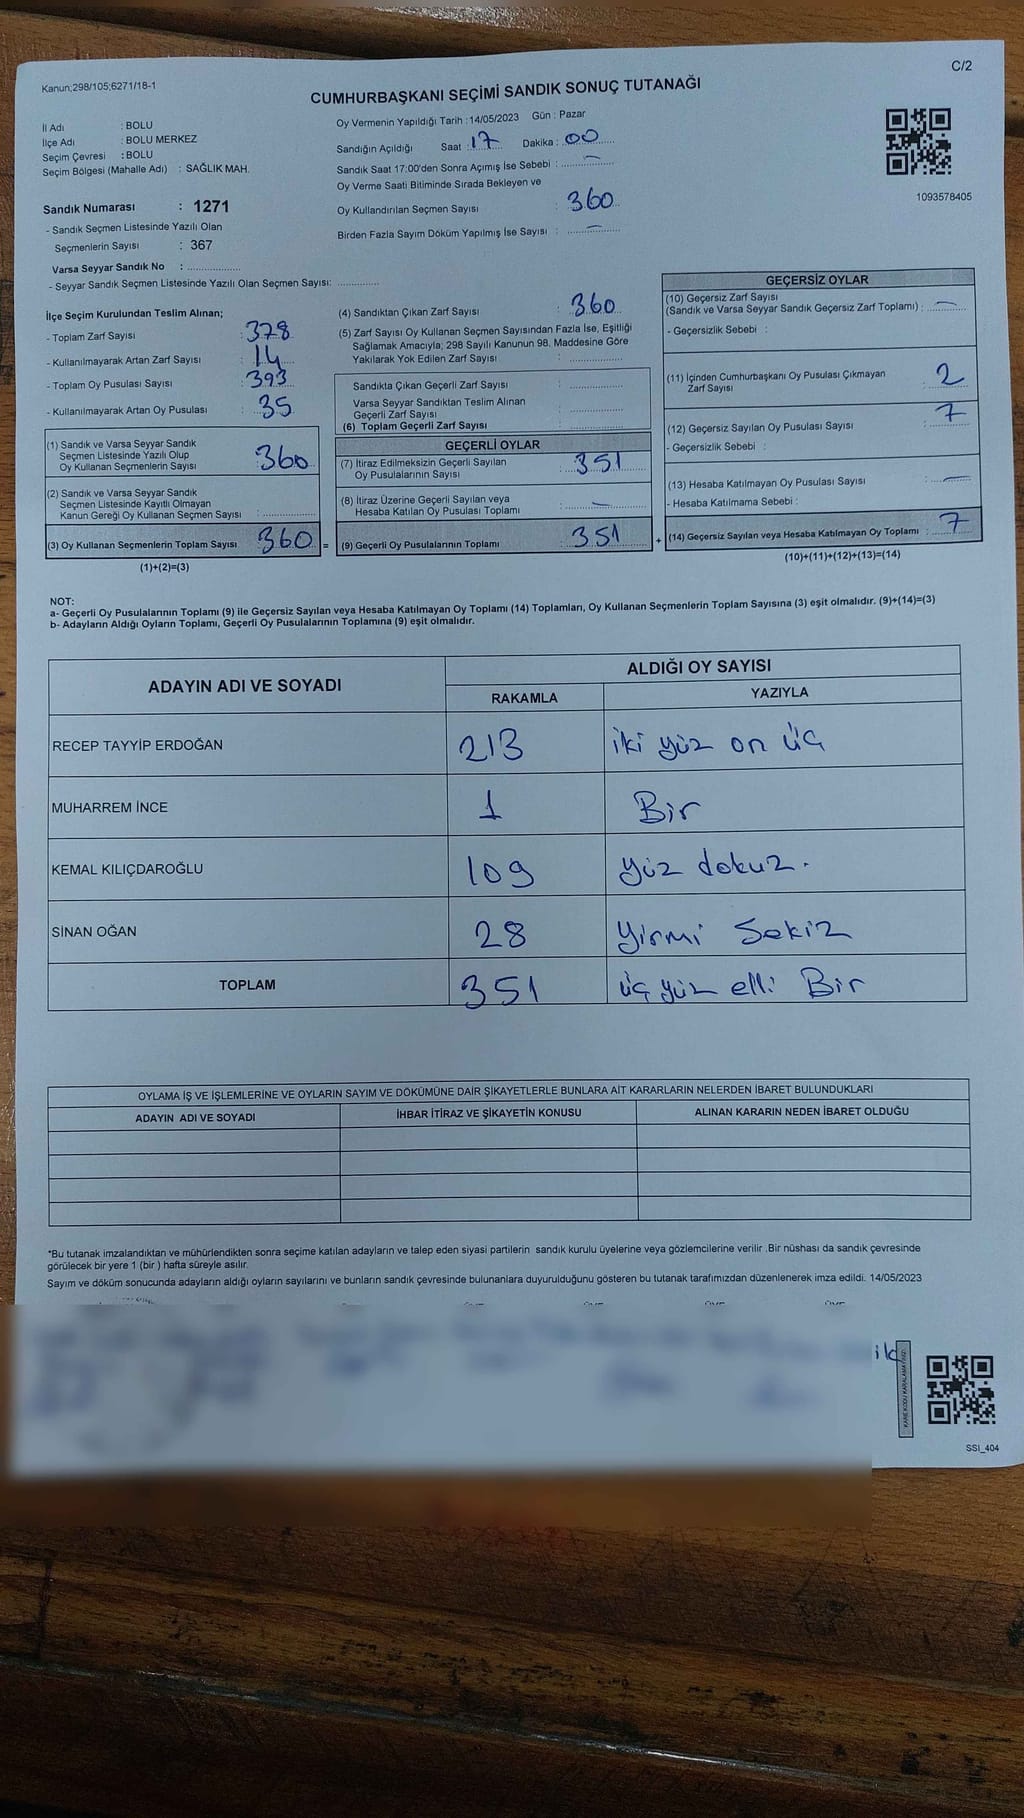 C/2
Kanun;298/105;6271/18-1
CUMHURBAŞKANI SEÇİMİ SANDIK SONUÇ TUTANAĞI
İl Adı : BOLU
İlçe Adı : BOLU MERKEZ
Seçim Çevresi : BOLU
Seçim Bölgesi (Mahalle Adı) : SAĞLIK MAH.
Oy Vermenin Yapıldığı Tarih :14/05/2023 Gün : Pazar
Sandığın Açıldığı Saat : 17 Dakika : 00
Sandık Saat 17:00'den Sonra Açımış İse Sebebi : —
Oy Verme Saati Bitiminde Sırada Bekleyen ve
Oy Kullandırılan Seçmen Sayısı : 360
Birden Fazla Sayım Döküm Yapılmış İse Sayısı : —
1093578405
Sandık Numarası : 1271
- Sandık Seçmen Listesinde Yazılı Olan
Seçmenlerin Sayısı : 367
Varsa Seyyar Sandık No : ..................
- Seyyar Sandık Seçmen Listesinde Yazılı Olan Seçmen Sayısı: .............
İlçe Seçim Kurulundan Teslim Alınan;
- Toplam Zarf Sayısı : 378
- Kullanılmayarak Artan Zarf Sayısı : 14
- Toplam Oy Pusulası Sayısı : 393
- Kullanılmayarak Artan Oy Pusulası : 35
(1) Sandık ve Varsa Seyyar Sandık
Seçmen Listesinde Yazılı Olup
Oy Kullanan Seçmenlerin Sayısı : 360
(2) Sandık ve Varsa Seyyar Sandık
Seçmen Listesinde Kayıtlı Olmayan
Kanun Gereği Oy Kullanan Seçmen Sayısı :
(3) Oy Kullanan Seçmenlerin Toplam Sayısı 360 =
(1)+(2)=(3)
(4) Sandıktan Çıkan Zarf Sayısı : 360
(5) Zarf Sayısı Oy Kullanan Seçmen Sayısından Fazla İse, Eşitliği
Sağlamak Amacıyla; 298 Sayılı Kanunun 98. Maddesine Göre
Yakılarak Yok Edilen Zarf Sayısı :
Sandıkta Çıkan Geçerli Zarf Sayısı :
Varsa Seyyar Sandıktan Teslim Alınan
Geçerli Zarf Sayısı :
(6) Toplam Geçerli Zarf Sayısı :
GEÇERLİ OYLAR
(7) İtiraz Edilmeksizin Geçerli Sayılan
Oy Pusulalarının Sayısı : 351
(8) İtiraz Üzerine Geçerli Sayılan veya
Hesaba Katılan Oy Pusulası Toplamı : —
(9) Geçerli Oy Pusulalarının Toplamı : 351 +
GEÇERSİZ OYLAR
(10) Geçersiz Zarf Sayısı
(Sandık ve Varsa Seyyar Sandık Geçersiz Zarf Toplamı) : —
- Geçersizlik Sebebi :
(11) İçinden Cumhurbaşkanı Oy Pusulası Çıkmayan
Zarf Sayısı : 2
(12) Geçersiz Sayılan Oy Pusulası Sayısı : 7
- Geçersizlik Sebebi :
(13) Hesaba Katılmayan Oy Pusulası Sayısı : —
- Hesaba Katılmama Sebebi :
(14) Geçersiz Sayılan veya Hesaba Katılmayan Oy Toplamı : 7
(10)+(11)+(12)+(13)=(14)
NOT:
a- Geçerli Oy Pusulalarının Toplamı (9) ile Geçersiz Sayılan veya Hesaba Katılmayan Oy Toplamı (14) Toplamları, Oy Kullanan Seçmenlerin Toplam Sayısına (3) eşit olmalıdır. (9)+(14)=(3)
b- Adayların Aldığı Oyların Toplamı, Geçerli Oy Pusulalarının Toplamına (9) eşit olmalıdır.
ADAYIN ADI VE SOYADI
ALDIĞI OY SAYISI
RAKAMLA YAZIYLA
RECEP TAYYİP ERDOĞAN 213 iki yüz on üç
MUHARREM İNCE 1 Bir
KEMAL KILIÇDAROĞLU 109 yüz dokuz.
SİNAN OĞAN 28 Yirmi Sekiz
TOPLAM 351 üç yüz elli Bir
OYLAMA İŞ VE İŞLEMLERİNE VE OYLARIN SAYIM VE DÖKÜMÜNE DAİR ŞİKAYETLERLE BUNLARA AİT KARARLARIN NELERDEN İBARET BULUNDUKLARI
ADAYIN ADI VE SOYADI İHBAR İTİRAZ VE ŞİKAYETİN KONUSU ALINAN KARARIN NEDEN İBARET OLDUĞU
*Bu tutanak imzalandıktan ve mühürlendikten sonra seçime katılan adayların ve talep eden siyasi partilerin sandık kurulu üyelerine veya gözlemcilerine verilir .Bir nüshası da sandık çevresinde
görülecek bir yere 1 (bir ) hafta süreyle asılır.
Sayım ve döküm sonucunda adayların aldığı oyların sayılarını ve bunların sandık çevresinde bulunanlara duyurulduğunu gösteren bu tutanak tarafımızdan düzenlenerek imza edildi. 14/05/2023
SSI_404